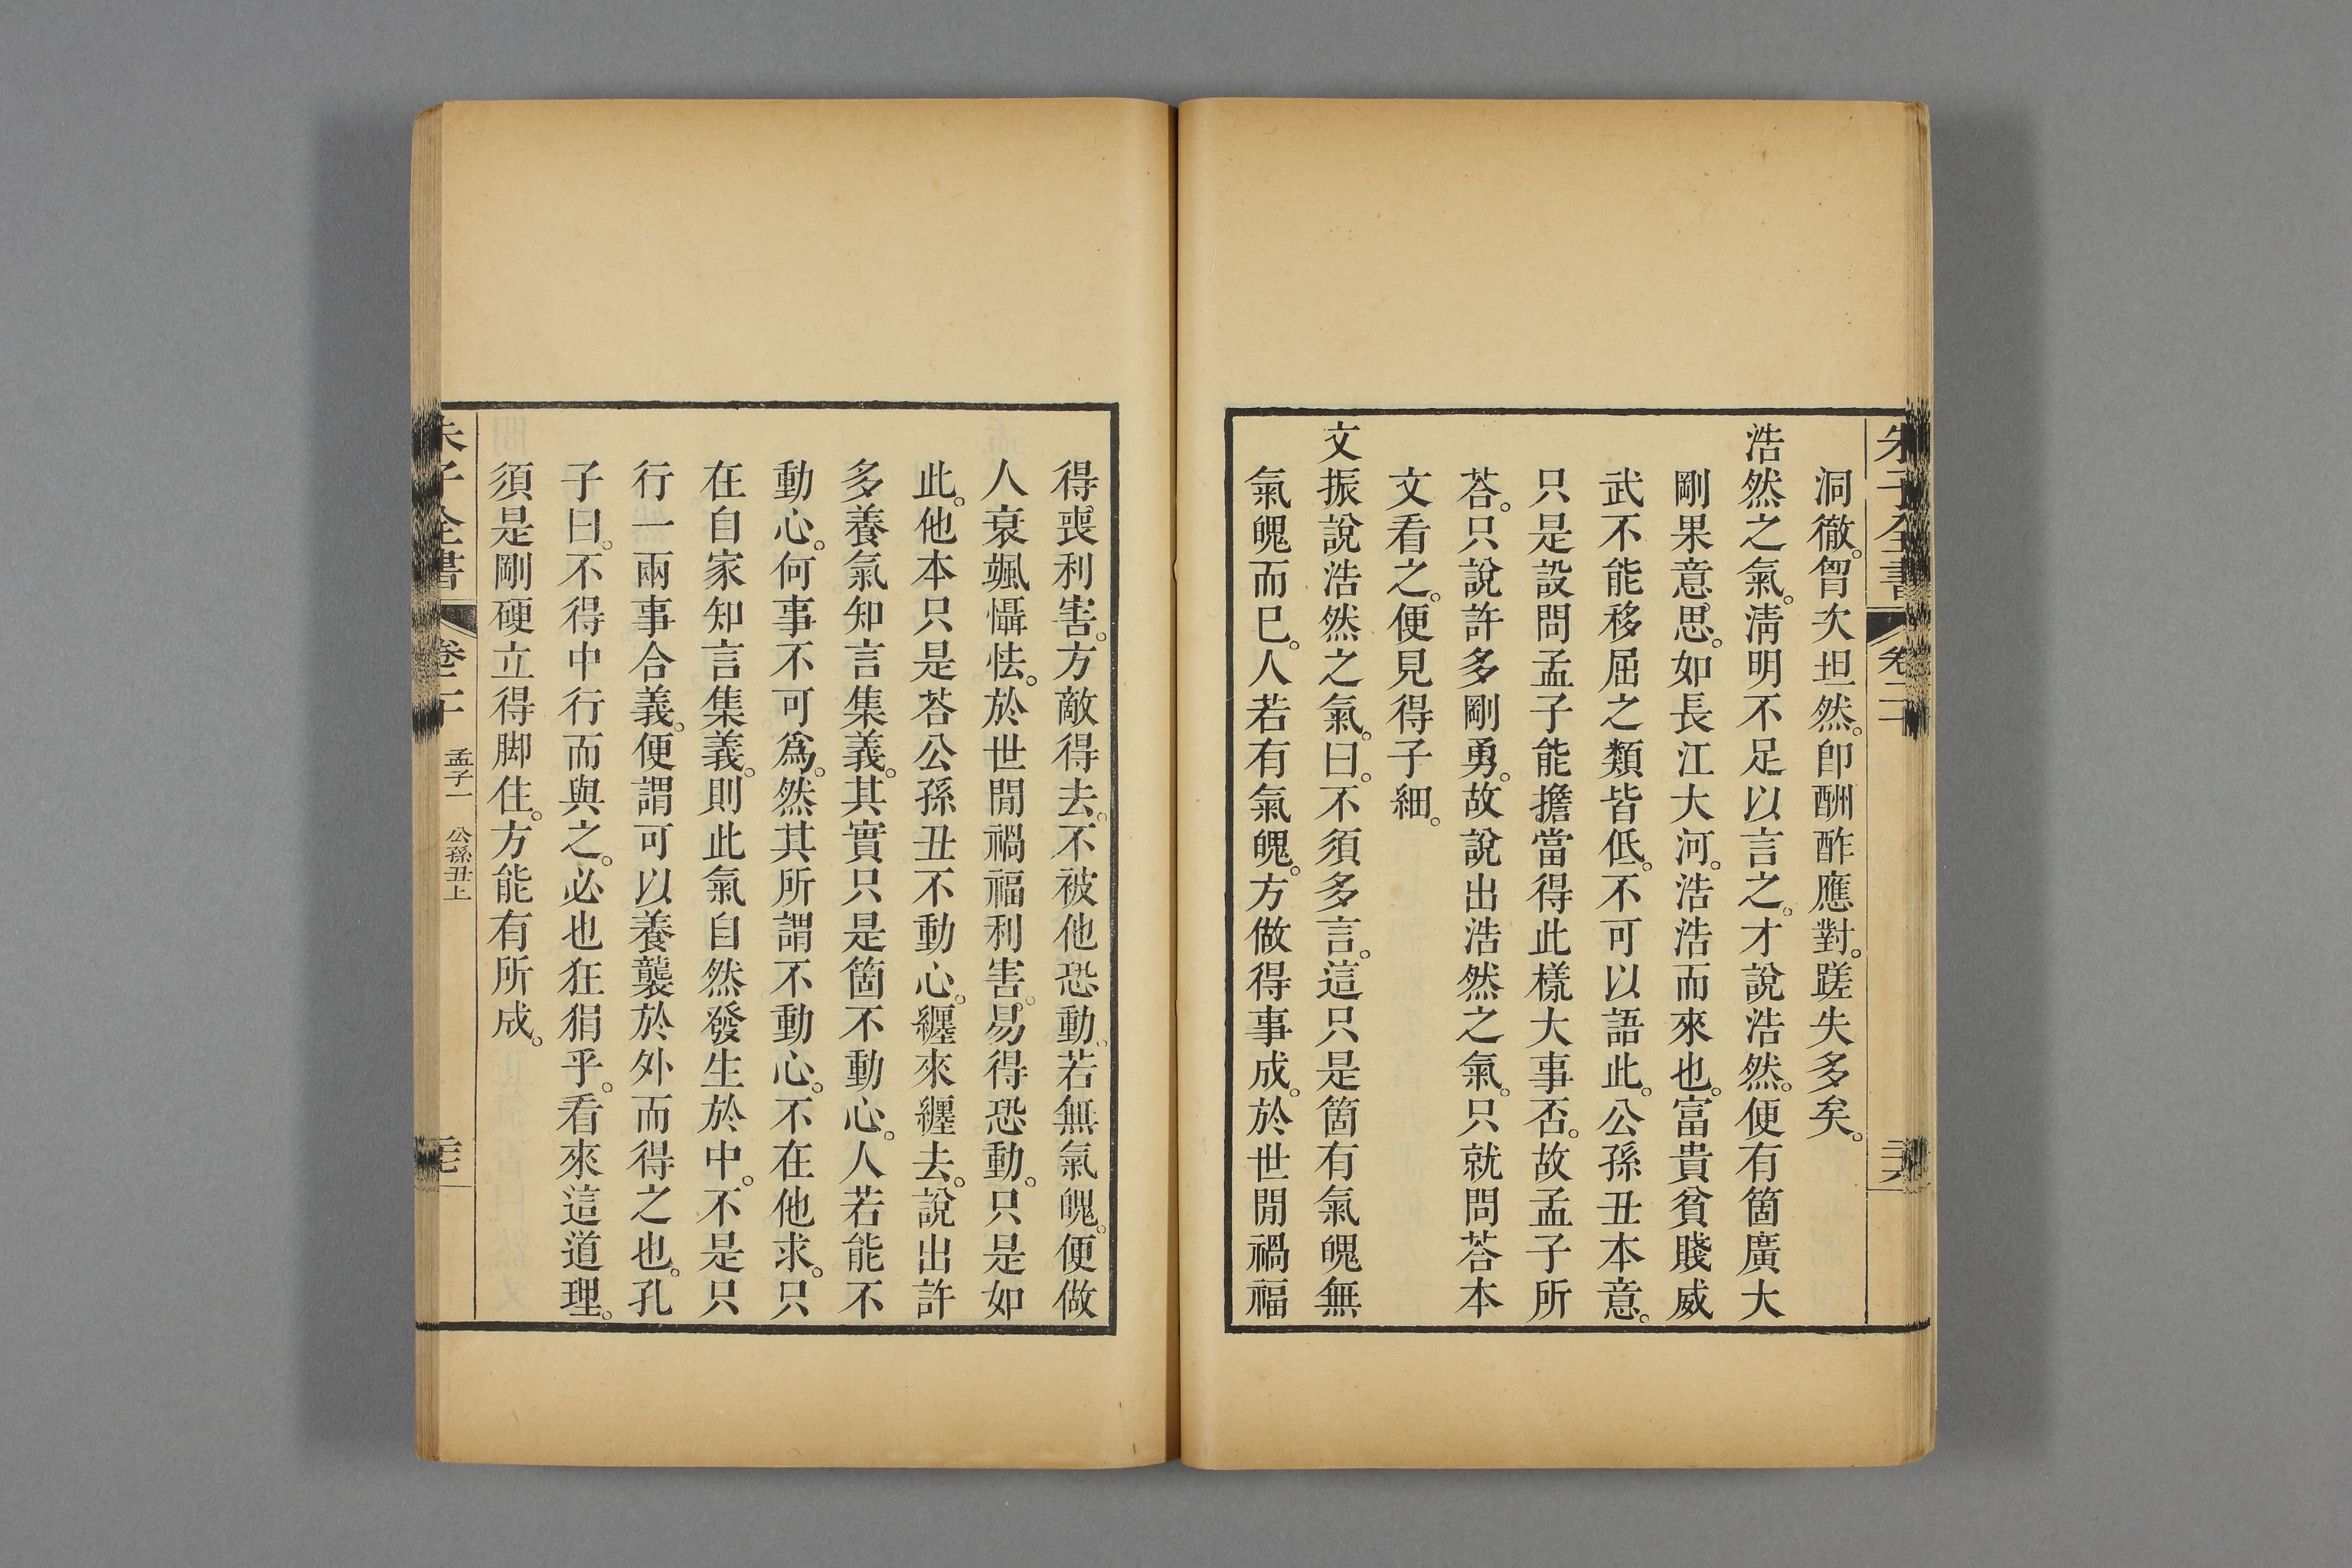 朱子全書 卷二十 三六
洞徹。胷次坦然。卽酬酢應對。蹉失多矣。
浩然之氣。淸明不足以言之。才說浩然。便有箇廣大
剛果意思。如長江大河。浩浩而來也。富貴貧賤威
武不能移屈之類皆低。不可以語此。公孫丑本意。
只是設問孟子能擔當得此樣大事否。故孟子所
荅。只說許多剛勇。故說出浩然之氣。只就問荅本
文看之。便見得子細。
文振說浩然之氣。曰。不須多言。這只是箇有氣魄無
氣魄而巳。人若有氣魄。方做得事成。於世閒禍福
得喪利害。方敵得去。不被他恐動。若無氣魄。便做
人衰颯懾怯。於世閒禍福利害。易得恐動。只是如
此。他本只是荅公孫丑不動心。纏來纏去。說出許
多養氣知言集義。其實只是箇不動心。人若能不
動心。何事不可爲。然其所謂不動心。不在他求。只
在自家知言集義。則此氣自然發生於中。不是只
行一兩事合義。便謂可以養襲於外而得之也。孔
子曰。不得中行而與之。必也狂狷乎。看來這道理。
須是剛硬立得脚住。方能有所成。
朱子全書 卷二十 孟子一 公孫丑上